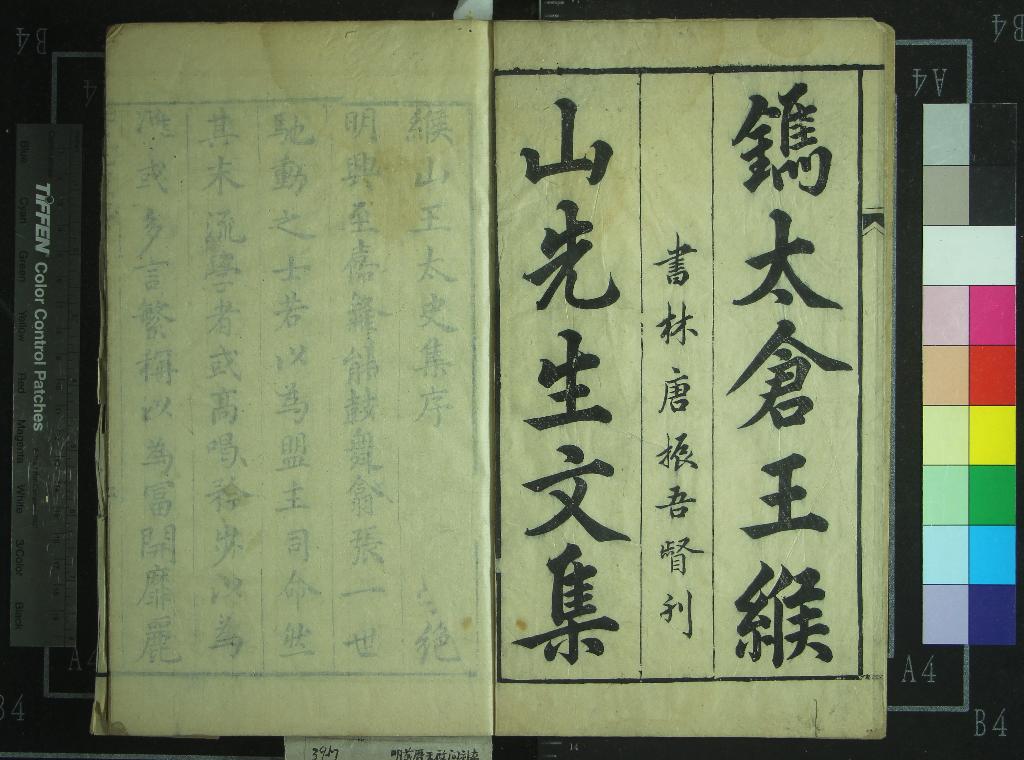 鐫太倉王緱
書林唐振吾督刊
山先生文集
緱山王太史集序
絶
明興至嘉隆能鼓舞翕張一世
馳動之士若以為盟主司命然
其末流學者或高唱矜步以為
雅或多言繁稱以為富開靡麗
TIFFEN Color Control Patches
Blue Cyan Green Yellow Red Magenta White 3/Color Black
B4
A4
A4
B4
B4
A4
A4
B4
3917